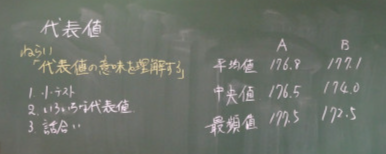 代表値
ねらい
「代表値の意味を理解する」
1. 小テスト
2. いろいろな代表値
3. 話合い
A B
平均値 176.8 177.1
中央値 176.5 174.0
最頻値 177.5 172.5